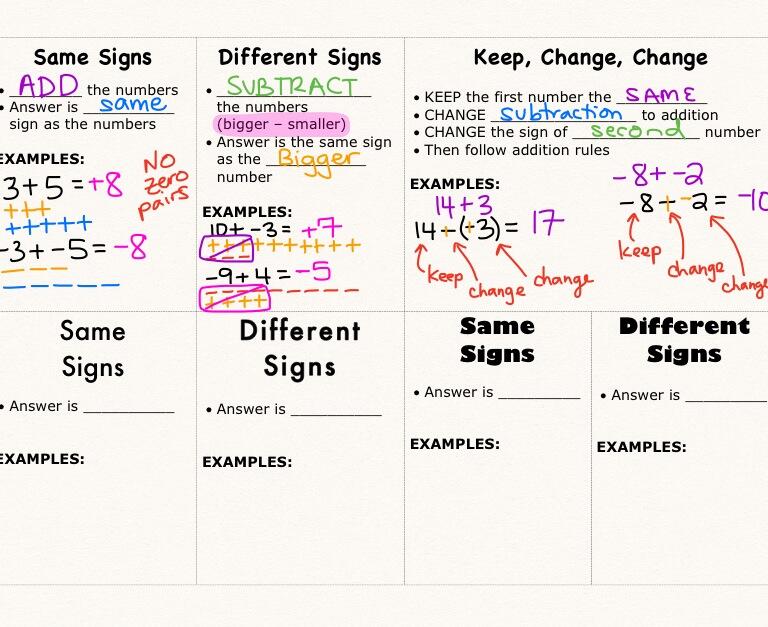 Same Signs
• ADD the numbers
• Answer is same
sign as the numbers
EXAMPLES:
3 + 5 = +8
NO
zero
pairs
+++
+++++
-3 + -5 = -8
Different Signs
• SUBTRACT
the numbers
(bigger – smaller)
• Answer is the same sign
as the Bigger
number
EXAMPLES:
10 + -3 = +7
++++++++++
−−−
-9 + 4 = -5
−−−−−−−−−
++++
Keep, Change, Change
• KEEP the first number the SAME
• CHANGE subtraction to addition
• CHANGE the sign of second number
• Then follow addition rules
EXAMPLES:
14 + 3
= 17
keep
change
change
-8 + -2
-8 + -2 = -10
keep
change
change
Same
Signs
• Answer is ____________
EXAMPLES:
Different
Signs
• Answer is ____________
EXAMPLES:
Same
Signs
• Answer is ___________
EXAMPLES:
Different
Signs
• Answer is ___________
EXAMPLES: